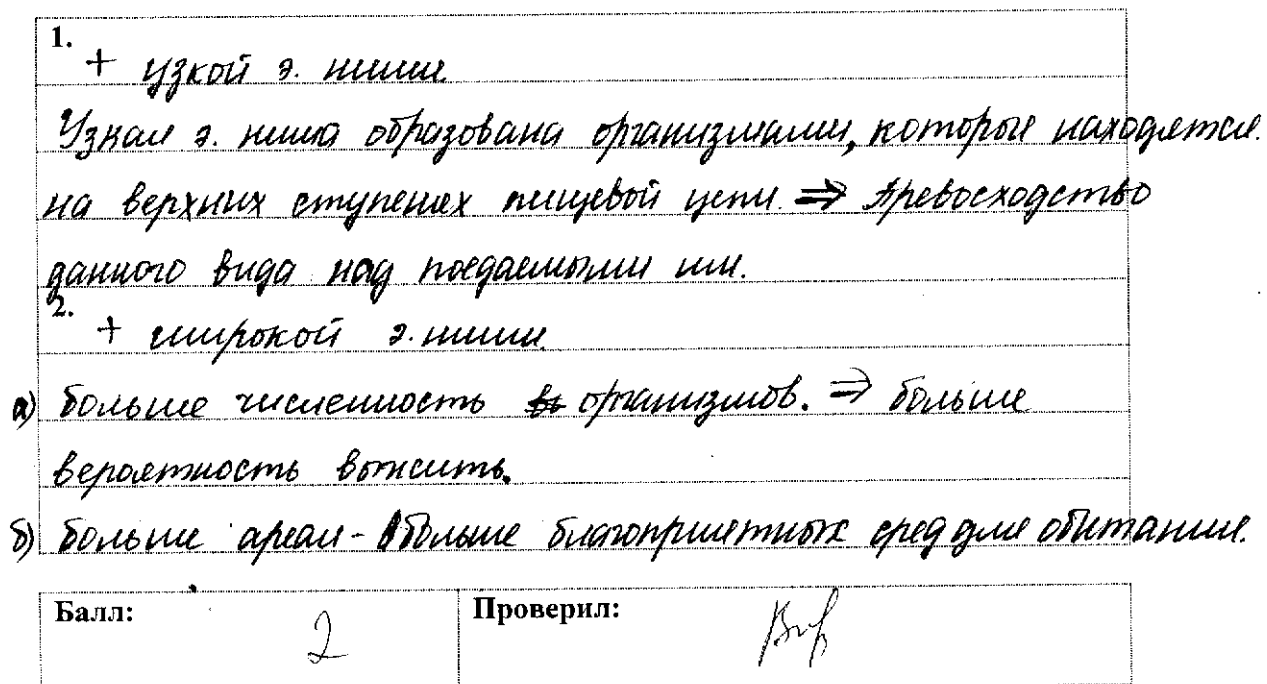 1.
+ узкой э. ниши
Узкая э. ниша образована организмами, которые находятся
на верхних ступенях пищевой цепи. ⇒ превосходство
данного вида над поедаемыми им.
2.
+ широкой э. ниши
а) больше численность организмов. ⇒ больше
вероятность выжить.
б) больше ареал - больше благоприятных сред для обитания.
Балл: 2 Проверил: